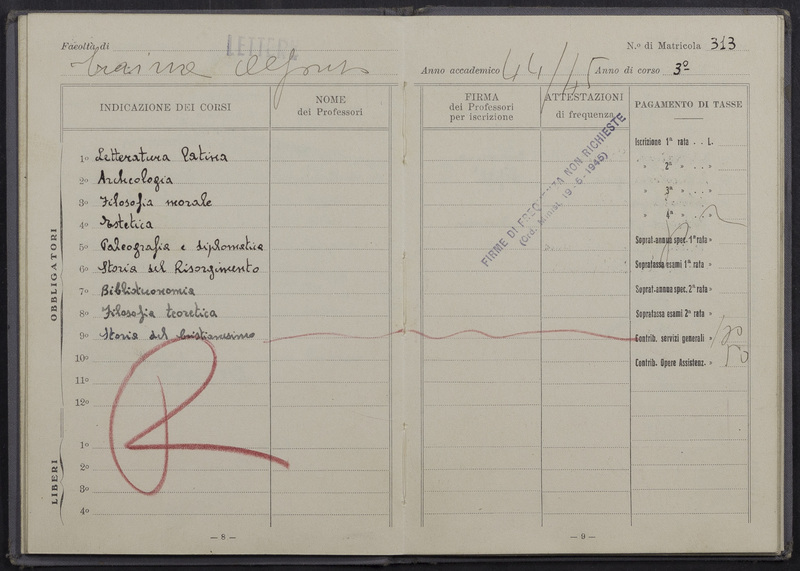 Facoltà di LETTERE
Traina Alfonso
INDICAZIONE DEI CORSI
NOME
dei Professori
OBBLIGATORI
1º Letteratura Latina
2º Archeologia
3º Filosofia morale
4º Estetica
5º Paleografia e diplomatica
6º Storia del Risorgimento
7º Biblioteconomia
8º Filosofia teoretica
9º Storia del Cristianesimo
10º
11º
12º
LIBERI
1º
2º
3º
4º
— 8 —
N.º di Matricola 313
Anno accademico 44/45 Anno di corso 3º
FIRMA
dei Professori
per iscrizione
ATTESTAZIONI
di frequenza
PAGAMENTO DI TASSE
FIRME DI FREQUENZA NON RICHIESTE
(Ord. Minist. 19-5-1945)
Iscrizione 1ª rata . . L.
» 2ª » . . »
» 3ª » . . »
» 4ª » . . »
Soprat. annua spec. 1ª rata »
Sopratassa esami 1ª rata »
Soprat. annua spec. 2ª rata »
Sopratassa esami 2ª rata »
Contrib. servizi generali »
Contrib. Opere Assistenz. » 50
— 9 —